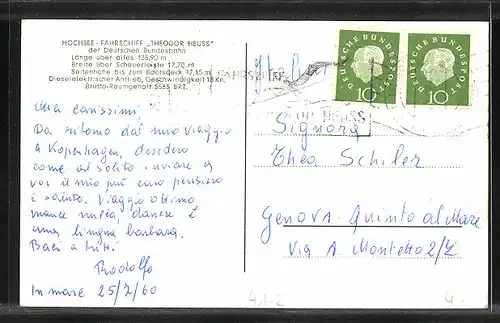 HOCHSEE - FÄHRSCHIFF „THEODOR HEUSS"
der Deutschen Bundesbahn
Länge über alles 135,90 m
Breite über Scheuerleiste 17,70 m
Seitenhöhe bis zum Bootsdeck 17,15 m
Dieselelektrischer Antrieb, Geschwindigkeit 18 Kn.
Brutto-Raumgehalt 5583 BRT.
Miei carissimi,
Da ritorno dal mio viaggio
a Kopenhagen, desidero
come al solito inviare a
voi il mio più caro pensiero
e saluto. Viaggio ottimo
danese è
una lingua barbara.
Baci a tutti
Rodolfo
In mare 25/7/60
DEUTSCHE BUNDESPOST
10
DEUTSCHE BUNDESPOST
10
HEUSS
Signora
Theo Schiler
GENOVA - Quinto al Mare
Via A. Montetto 2/2
41-2
4.-